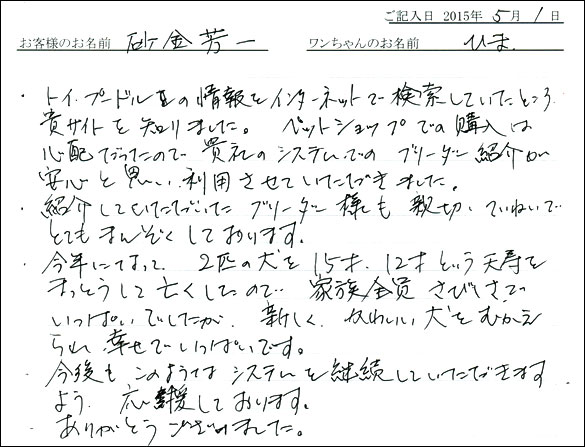 ご記入日 2015年 5月 1日
お客様のお名前 砂金芳一 ワンちゃんのお名前 ひま
・トイ・プードルの情報をインターネットで検索していたところ
貴サイトを知りました。ペットショップでの購入は
心配だったので貴社のシステムでのブリーダー紹介が
安心と思い、利用させていただきました。
・紹介していただいたブリーダー様も親切、ていねいで
とてもまんぞくしております。
・今年になって、2匹の犬を15才、12才という天寿を
まっとうして亡くしたので、家族全員さびしさで
いっぱいでしたが、新しく、かわいい犬をむかえ
られ幸せでいっぱいです。
・今後もこのようなシステムを継続していただきます
よう、応援しております。
ありがとうございました。